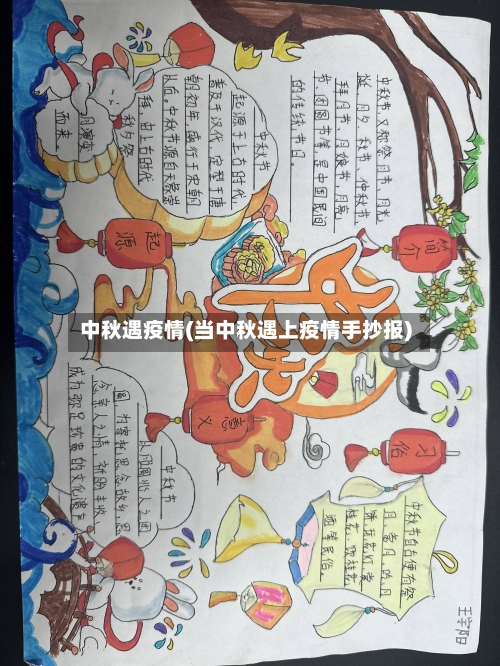 中秋遇疫情(当中秋遇上疫情手抄报)
中秋
简介
中秋节又称祭月节、月光
诞、月夕、秋节、仲秋节、
拜月节、月娘节、月亮
节、团圆节等,是中国民间
的传统节日。
起源
中秋节
起源于上古时代,
普及于汉代,定型于唐
朝初年,盛行于宋朝
以后。中秋节源自天象崇
拜,由上古时代
秋夕祭
月演变
而来。
习俗
中秋节自古便有祭
月、赏月、吃月
饼、玩花灯、赏
桂花、饮桂花
酒等民俗
意义
中秋节
以月圆兆人之团
圆,为寄托思念故乡,思
念亲人之情,祈盼丰收、
成为弥足珍贵的文化遗产